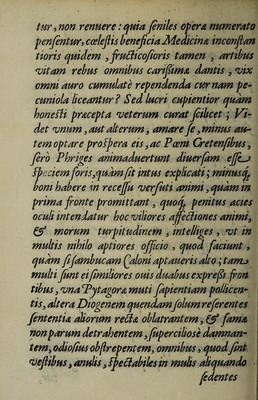 tur, non renuere: quia seniles operæ numerato
pensentur, cœlestis beneficia Medicinæ inconstan
tioris quidem, fructicosioris tamen, artibus
vitam rebus omnibus carißimæ dantis, vix
omni auro cumulatè rependenda cur nam pe-
cuniola liceantur? Sed lucri cupientior quàm
honesti præcepta veterum curat scilicet; Vi-
det vnum, aut alterum, amare se, minus au-
tem optare prospera eis, ac Pœni Cretensibus,
serò Phriges animaduertunt diuersam esse
speciem foris, quàm sit intus explicati; minusq́;
boni habere in recessu versuti animi, quàm in
prima fronte promittant, quoq́; penitus acies
oculi intendatur hoc viliores affectiones animi,
& morum turpitudinem, intelliges, vt in
multis nihilo aptiores officio, quod faciunt,
quàm si sambucam Caloni aptaueris alto; tam
multi sunt ei similiores ouis duabus expreßi fron
tibus, vna Pytagoræ muti sapientiam pollicen-
tis, altera Diogenem quendam solum referentes
sententiæ aliorum rectæ oblatrantem, & famæ
non parum detrahentem, superciliosè damnan-
tem, odiosius obstrepentem, omnibus, quod sint
vestibus, anulis, spectabiles in mulis aliquando
sedentes